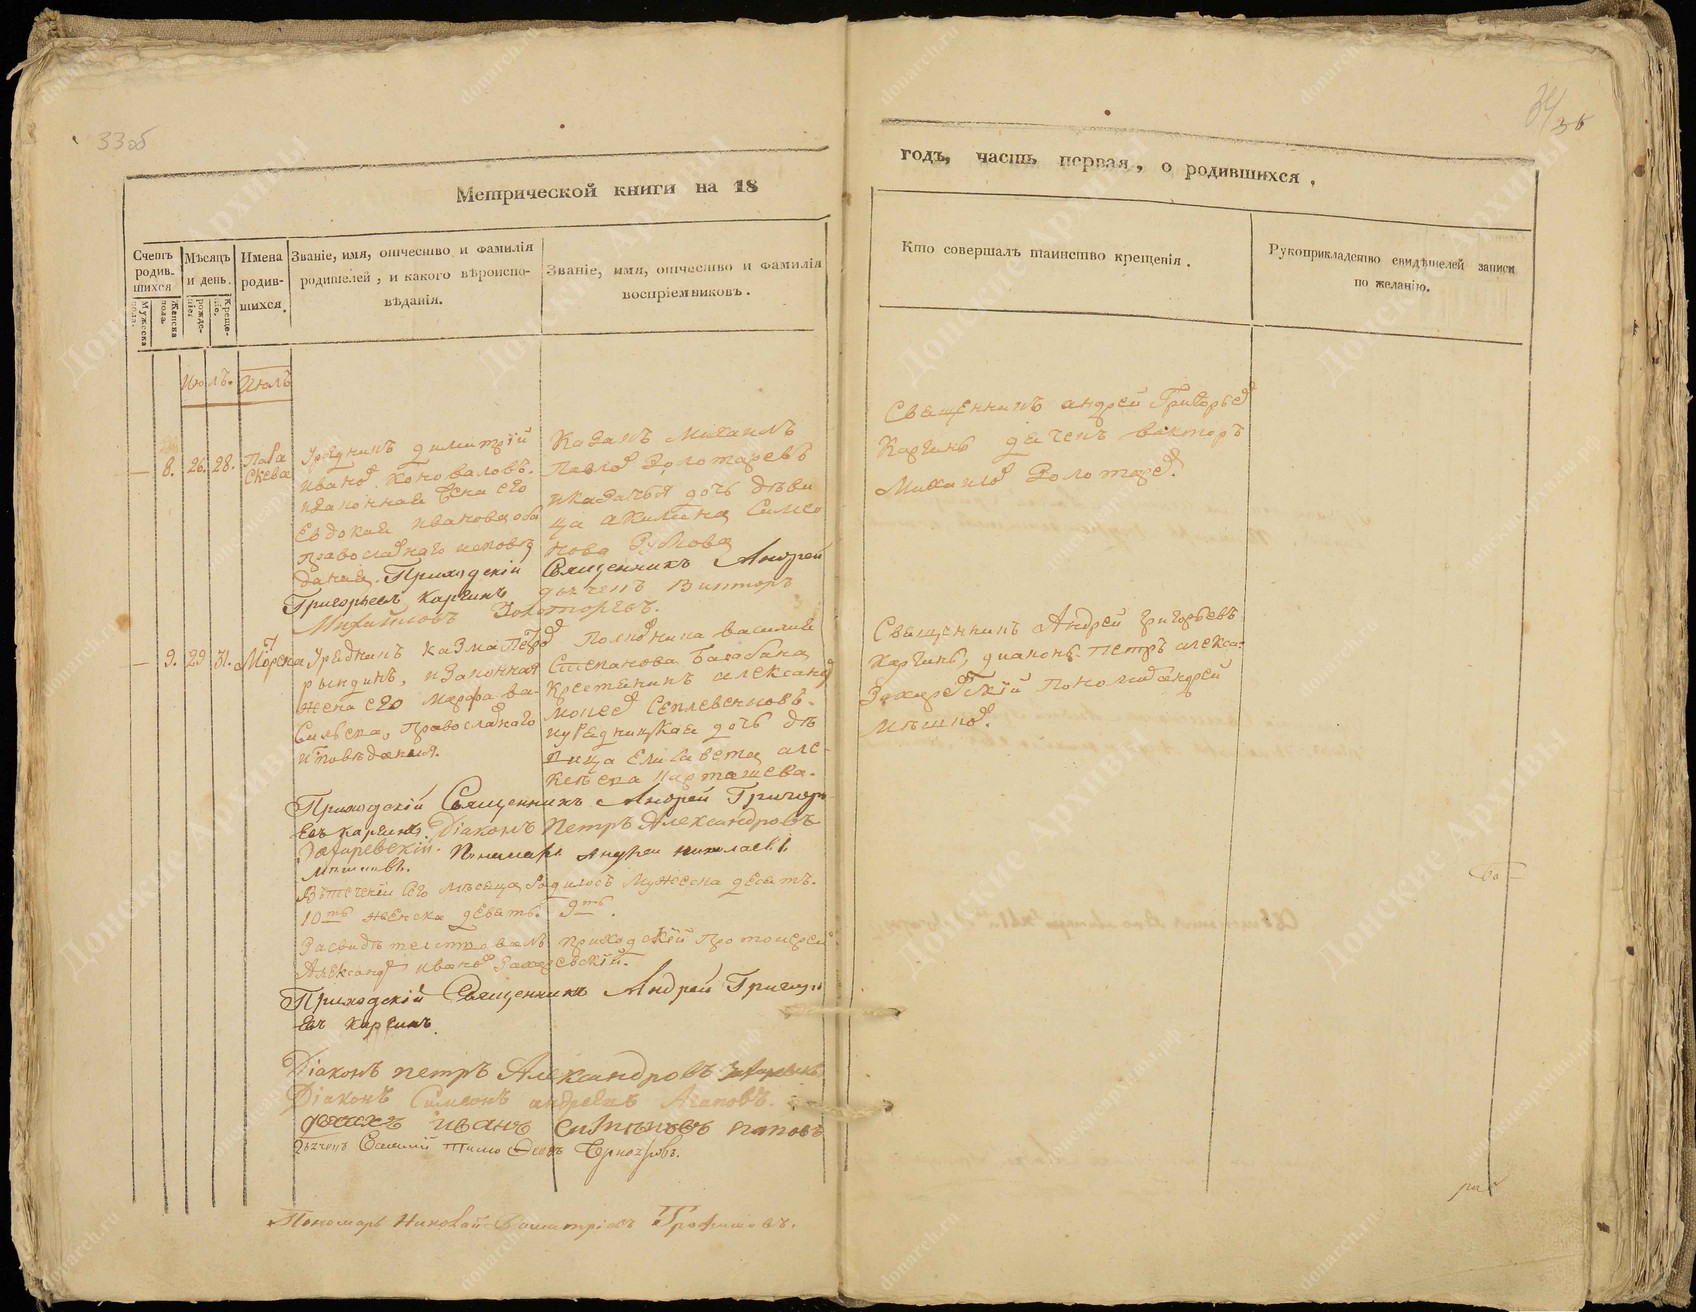 33об
Метрической книги на 18
Счетъ родив-шихся
Мѣсяцъ и день.
Имена родив-шихся.
Званіе, имя, отчество и фамилія
родителей, и какого вѣроиспо-
вѣданія.
Званіе, имя, отчество и фамилія
воспріемниковъ.
Мужеска пола.
Женска пола.
рожде-ніе.
Креще-ніе.
Июль. Июль
— 8. 26. 28. Пара
скева
Урядникъ димитрій
иванов Коноваловъ.
изаконная жена его
Евдокия иванова оба
православнаго исповѣ
дания.
Казакъ Михаилъ
Павлов Золотаревъ
иказачья дочь дѣви
ца акилина Симео
нова
Приходскій Священникъ Андрей
Григорьевъ Каргинъ дьячекъ Викторъ
Михайловъ Золотаревъ.
— 9. 29 31. Марфа
Урядникъ Казма Петров
рындинъ, изаконная
жена его Марфа ва-
сильева, Православнаго
исповѣдания.
Полковника Василия
Степанова Балабина
Крестьянинъ александ
иурядницкая дочь дѣ
вица Елисавета але-
ксѣева Карташева.
Приходскій Священникъ Андрей Григорь-
евъ Каргинъ. Діаконъ Петръ Александровъ
Захаревскій. Пономарь Андрей Николаевъ
Мѣшковъ.
Втеченіи сего мѣсеца родилось Мужеска десеть.
10ть женска деветь. 9ть.
Засвидѣтелствовалъ приходскій Протоиерей
Александр иванов Захаревскій.
Приходскій Священникъ Андрей Григорь
евъ Каргинъ.
Діаконъ петръ Александровъ Захаревскъ
Діаконъ Симеонъ андреевъ Агаповъ.
дьячекъ иванъ агаповъ
дьячекъ Василий Тимофеевъ
Пономарь Николай Димитріевъ Трофимовъ.
34
36
годъ, часть первая, о родившихся,
Кто совершалъ таинство крещенія.
Рукоприкладство свидѣтелей записи
по желанію.
Священникъ андрей Григорьев
Каргинъ дячекъ викторъ
Михаилов Золотарев.
Священникъ Андрей григорьевъ
Каргинъ, диаконъ Петръ алекса:
Захаревскій пономарь андрей
Мѣшков.